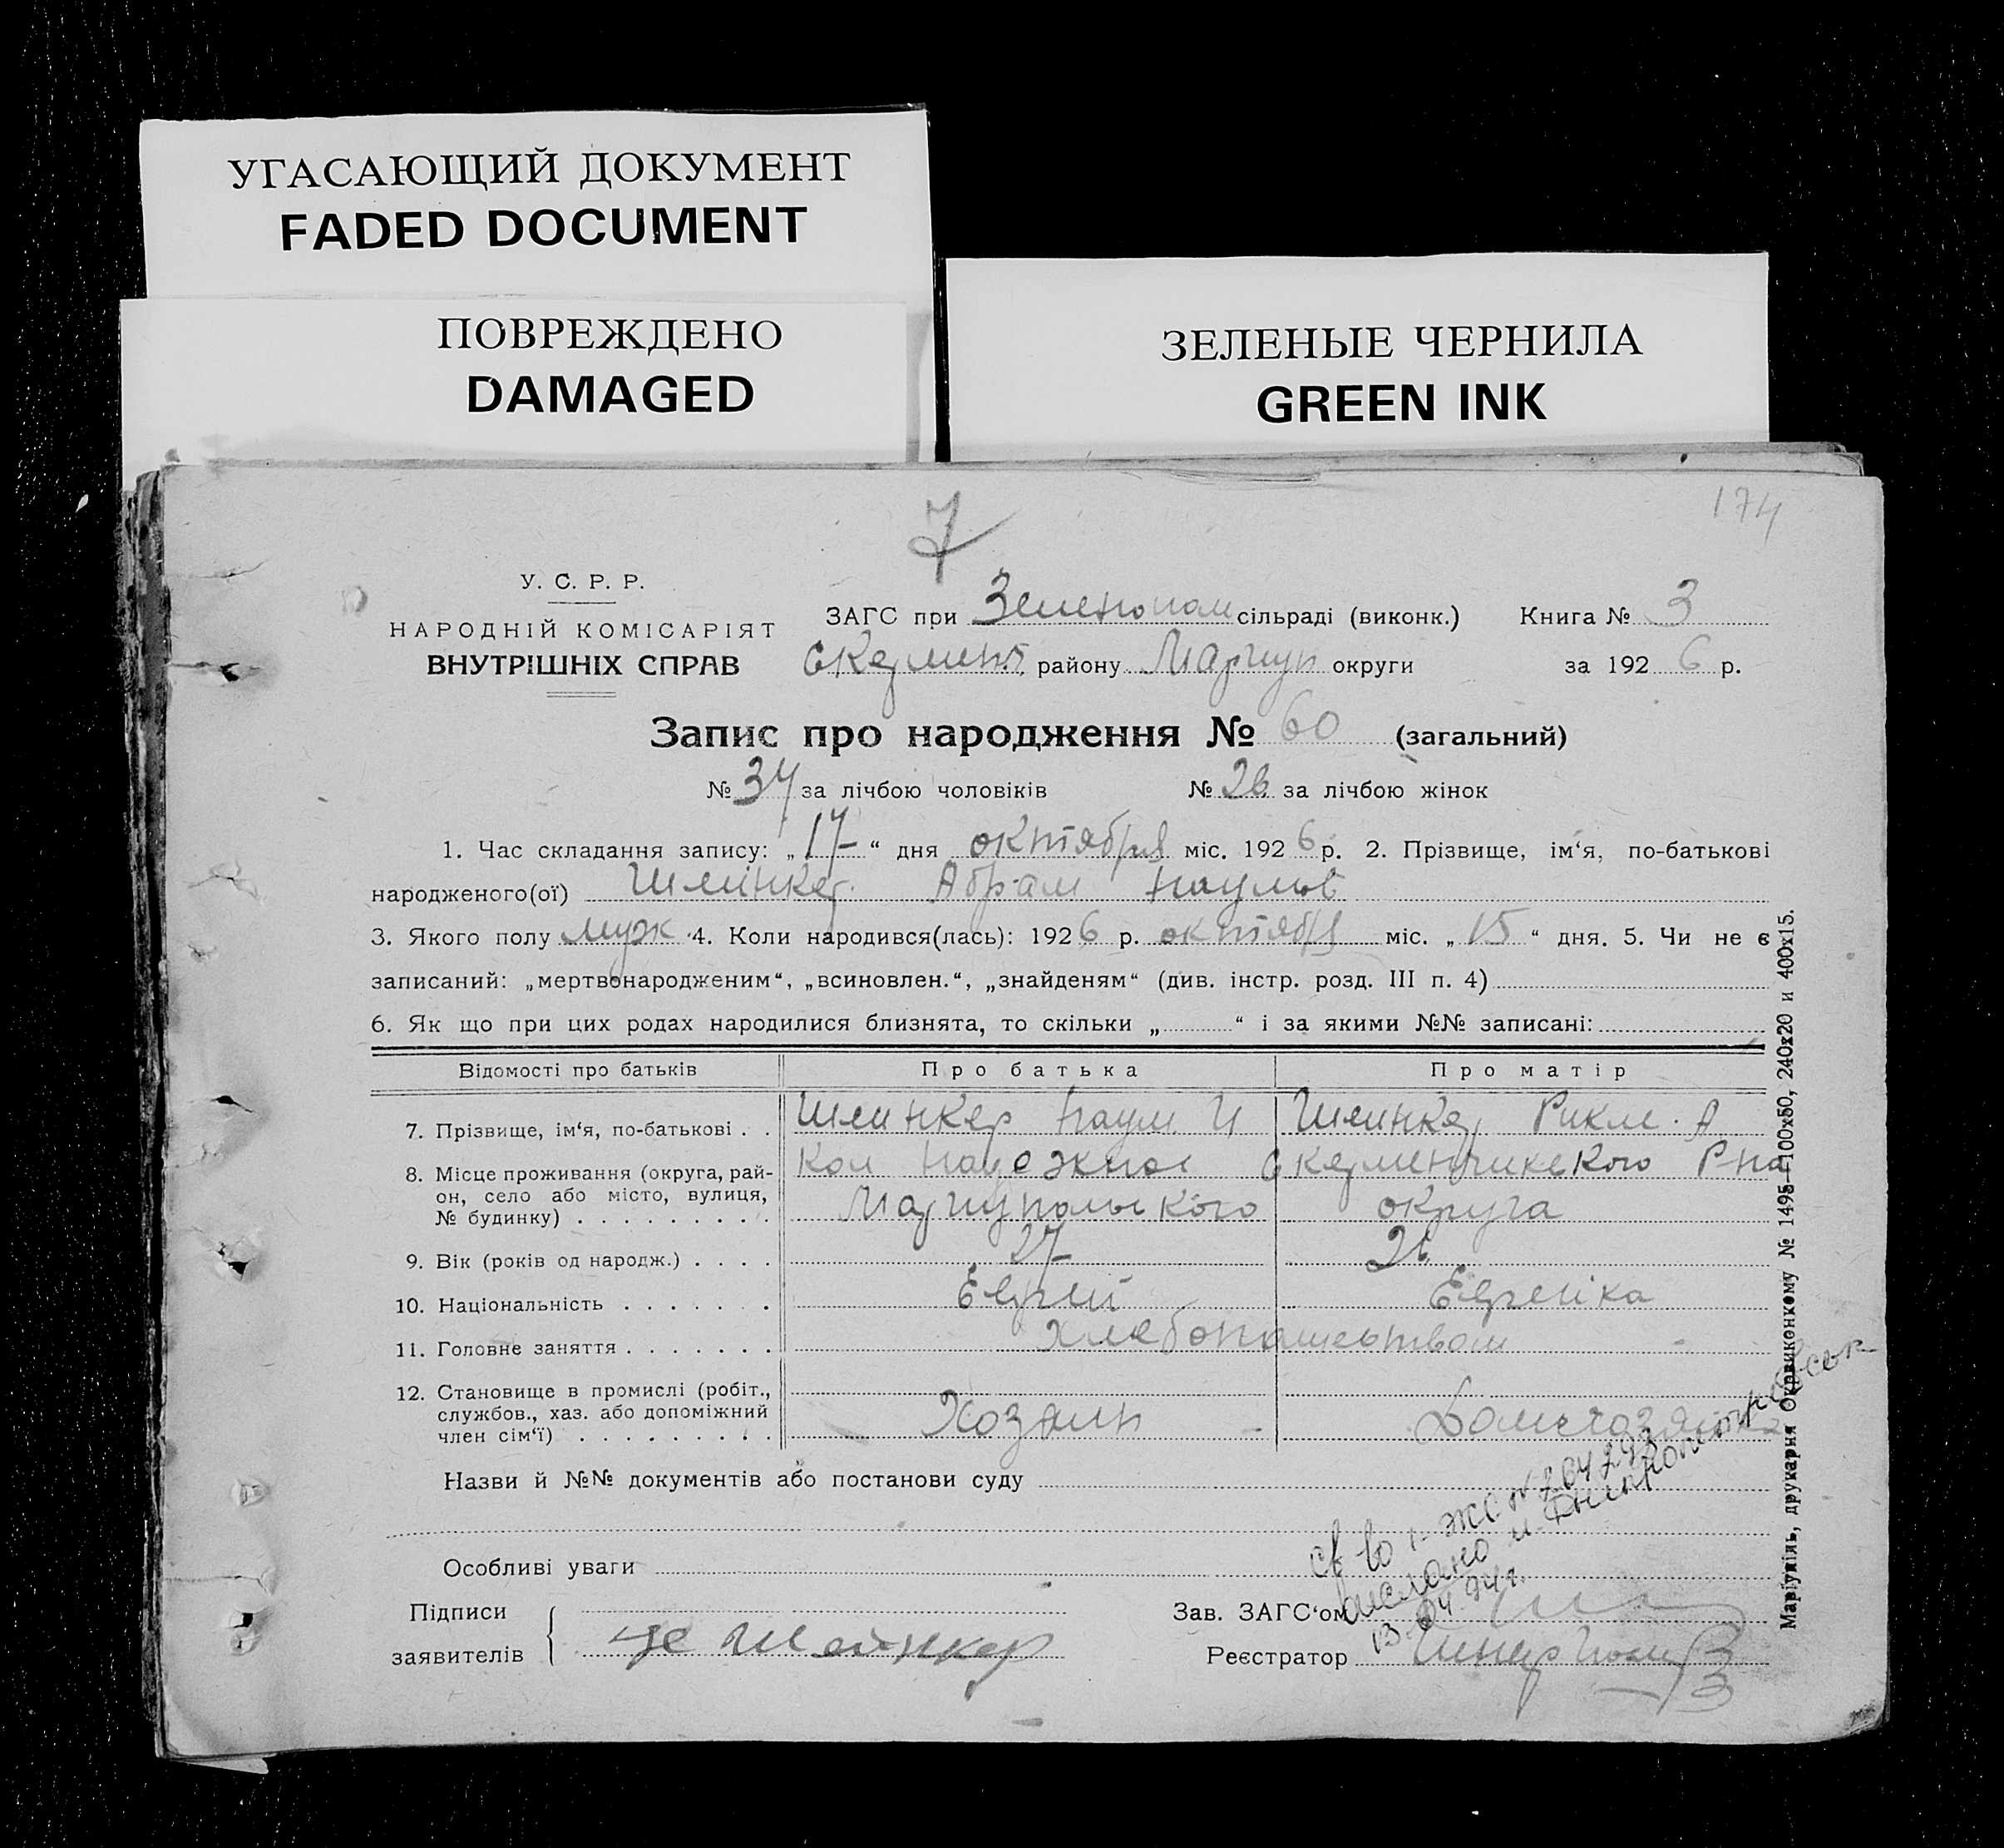 УГАСАЮЩИЙ ДОКУМЕНТ
FADED DOCUMENT
ПОВРЕЖДЕНО
DAMAGED
ЗЕЛЕНЫЕ ЧЕРНИЛА
GREEN INK
7
174
У. С. Р. Р.
НАРОДНІЙ КОМІСАРІЯТ
ВНУТРІШНІХ СПРАВ
ЗАГС при Зеленопол сільраді (виконк.) Книга № 3
Скермент району Мариуп округи за 192 6 р.
Запис про народження № 60 (загальний)
№ 34 за лічбою чоловіків № 26 за лічбою жінок
1. Час складання запису: „ 17 “ дня октября міс. 192 6 р. 2. Прізвище, ім‘я, по-батькові
народженого(ої) Шлинкер Абрам Наумов
3. Якого полу муж 4. Коли народився(лась): 192 6 р. октября міс. „ 15 “ дня. 5. Чи не є
записаний: „мертвонародженим“, „всиновлен.“, „знайденям“ (див. інстр. розд. III п. 4)
6. Як що при цих родах народилися близнята, то скільки „ “ і за якими №№ записані:
Відомості про батьків Про батька Про матір
7. Прізвище, ім‘я, по-батькові . . Шлинкер Наум И Шлинкер Рикл. А
8. Місце проживання (округа, рай-
он, село або місто, вулиця,
№ будинку) . . . . . . . . .
Кол Надежное Скерменчикского Р-на
Мариупольского округа
9. Вік (років од народж.) . . . . 27 26
10. Національність . . . . . . . Еврей Еврейка
11. Головне заняття . . . . . . . Хлебопашеством
12. Становище в промислі (робіт.,
службов., хаз. або допоміжний
член сім‘ї) . . . . . . . . .
Хозаин Домохозяйка
Назви й №№ документів або постанови суду
Особливі уваги
св-во I-ЖС № 264293
выслано и Днипропетровськ
13.04.94г.
Підписи
заявителів
Зав. ЗАГС‘ом
Реєстратор
Маріупіль, друкарня Окрвиконкому № 1495—100х50, 240х20 и 400х15.